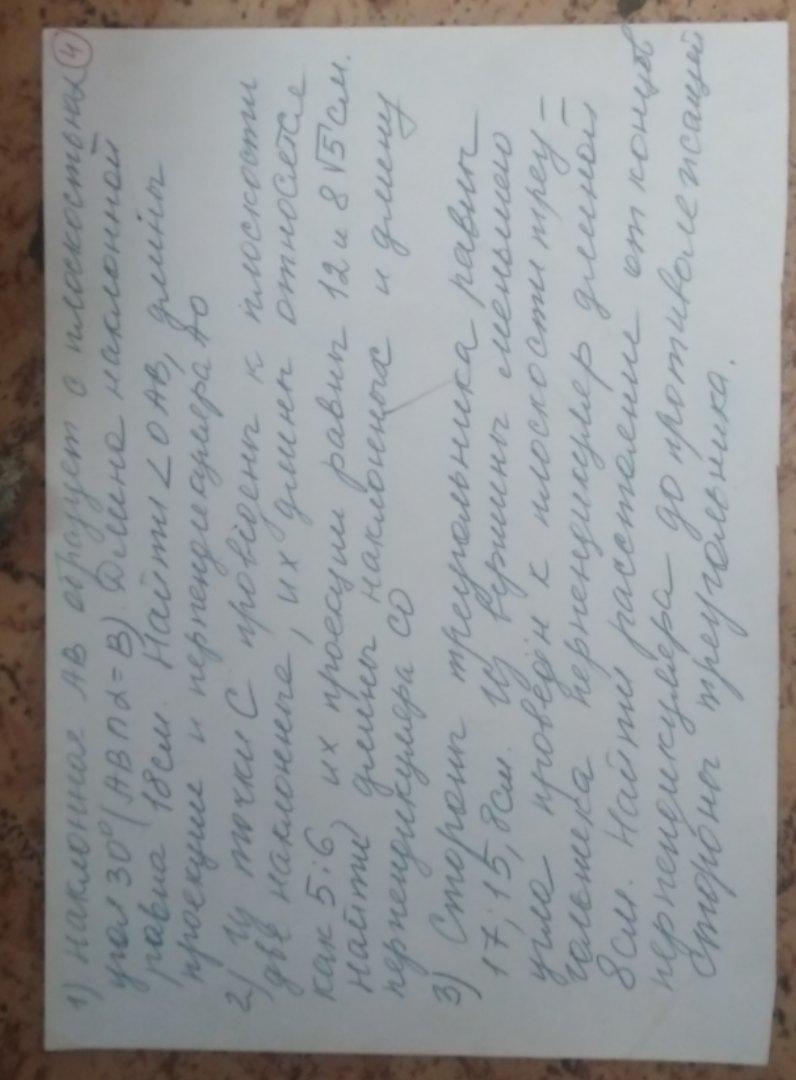 4
1) наклонная АВ образует с плоскостью α
угол 30° (АВ∩α=В). Длина наклонной
равна 18см. Найти ∠ОАВ, длины
проекции и перпендикуляра АО
2) Из точки С проведены к плоскости
две наклонные, их длины относятся
как 5:6, их проекции равны 12 и 8√5 см.
найти длины наклонных и длину
перпендикуляра СО
3) Стороны треугольника равны
17, 15, 8см. Из вершины меньшего
угла проведён к плоскости треу-
гольника перпендикуляр длиной
8см. Найти расстояние от концов
перпендикуляра до противолежащей
стороны треугольника.